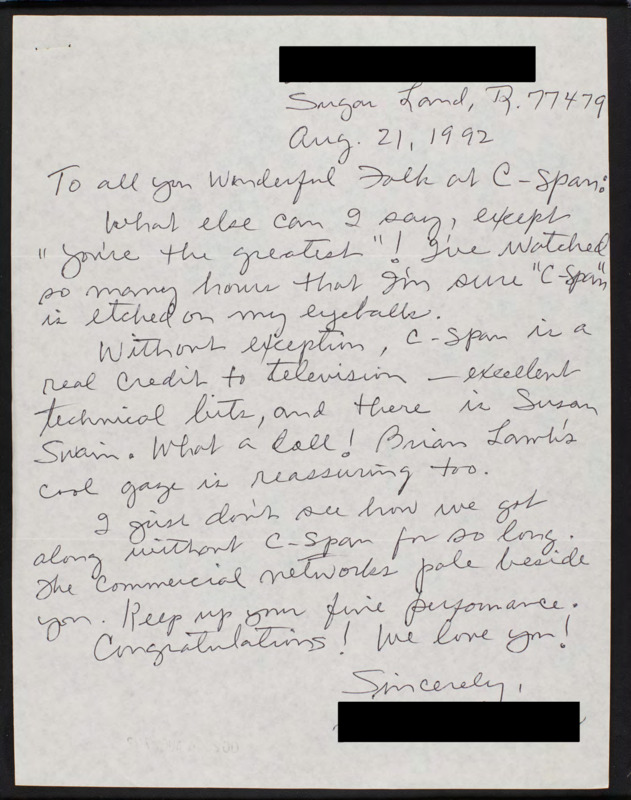 Sugar Land, Tx. 77479
Aug. 21, 1992
To all you Wonderful Folk at C-Span:
What else can I say, except
"You're the greatest"! I've watched
so many hours that I'm sure "C-Span"
is etched on my eyeballs.
Without exception, C-Span is a
real credit to television — excellent
technical bits, and there is Susan
Swain. What a doll! Brian Lamb's
cool gaze is reassuring too.
I just don't see how we got
along without C-Span for so long.
The commercial networks pale beside
you. Keep up your fine performance.
Congratulations! We love you!
Sincerely,